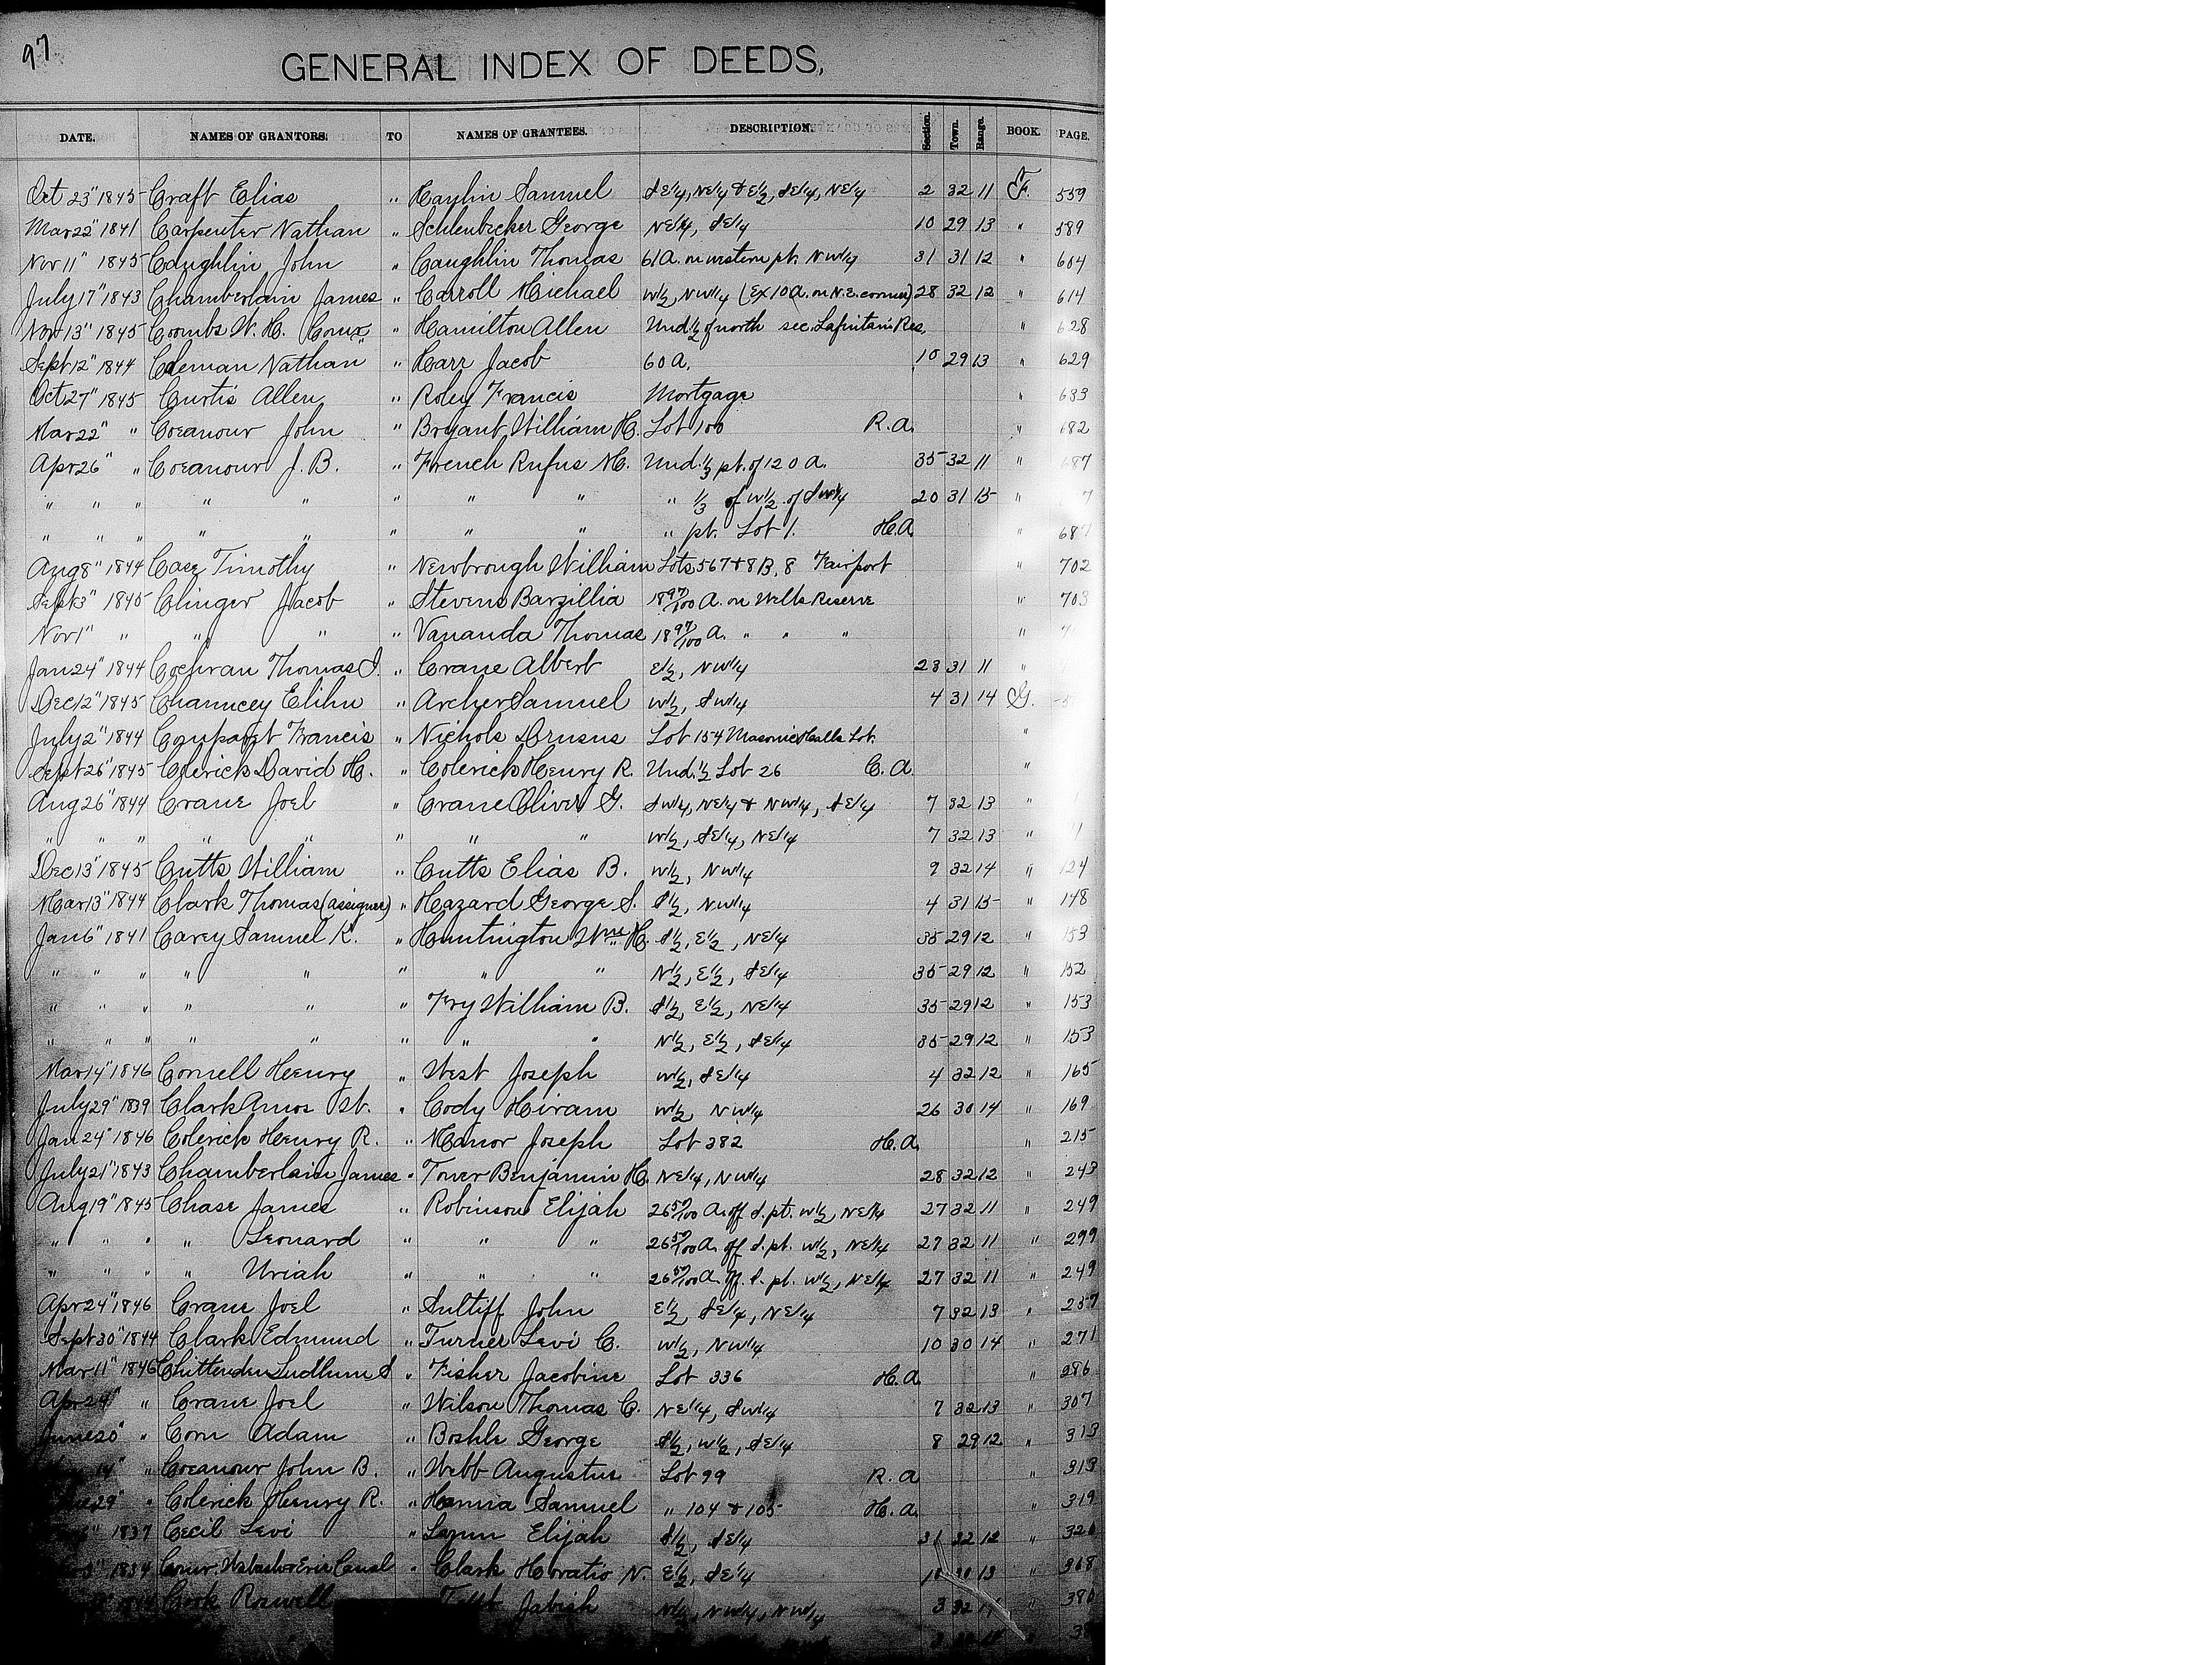 97
GENERAL INDEX OF DEEDS,
DATE. NAMES OF GRANTORS. TO NAMES OF GRANTEES. DESCRIPTION. Section. Town. Range. BOOK. PAGE.
Oct 23" 1845 Craft Elias " Haylin Samuel SE1/4, NE1/4 & E1/2, SE1/4, NE1/4 2 32 11 F. 559
Mar 22" 1841 Carpenter Nathan " Schlenbecker George NE1/4, SE1/4 10 29 13 " 589
Nov 11" 1845 Caughlin John " Caughlin Thomas 61 A. on western pt. NW1/4 31 31 12 " 604
July 17" 1843 Chamberlain James " Carroll Michael W1/2, NW1/4 (Ex 10 A. on N.E. corner) 28 32 12 " 614
Nov 13" 1845 Coombs W. H. Comr " Hamilton Allen Und. 1/2 of north sec. Lafontain Res. " 628
Sept 12" 1844 Coleman Nathan " Harr Jacob 60 A. 10 29 13 " 629
Oct 27" 1845 Curtis Allen " Roley Francis Mortgage " 633
Mar 22" " Coeanour John " Bryant William H. Lot 100 R.A. " 682
Apr 26" " Coeanour J. B. " French Rufus M. Und. 1/3 pt. of 120 A. 35 32 11 " 687
" " " " " " " " " 1/3 of W1/2 of SW1/4 20 31 15 " 7
" " " " " " " " " pt. Lot 1. H.A. " 687
Aug 8" 1844 Case Timothy " Newbrough William Lots 5 6 7 & 8 B. 8 Fairport " 702
Sept 3" 1845 Clinger Jacob " Stevens Barzillia 18 97/100 A. on Wells Reserve " 703
Nov 1" " " " " Vananda Thomas 18 97/100 A. " " " " 7
Jan 24" 1844 Cochran Thomas J. " Crane Albert E1/2, NW1/4 23 31 11 "
Dec 12" 1845 Chauncey Elihu " Archer Samuel W1/2, SW1/4 4 31 14 G.
July 2" 1844 Comparet Francis " Nichols Drusus Lot 154 Masonic Halls Lot. "
Sept 26" 1845 Colerick David H. " Colerick Henry R. Und. 1/2 Lot 26 C.A. "
Aug 26" 1844 Crane Joel " Crane Oliver G. SW1/4, NE1/4 & NW1/4, SE1/4 7 32 13 "
" " " " " " " " W1/2, SE1/4, NE1/4 7 32 13 "
Dec 13" 1845 Cutts William " Cutts Elias B. W1/2, NW1/4 9 32 14 " 124
Mar 13" 1844 Clark Thomas (assignee) " Hazard George S. S1/2, NW1/4 4 31 15 " 148
Jan 6" 1841 Carey Samuel R. " Huntington Wm H. S1/2, E1/2, NE1/4 35 29 12 " 153
" " " " " " " " N1/2, E1/2, SE1/4 35 29 12 " 152
" " " " " " Fry William B. S1/2, E1/2, NE1/4 35 29 12 " 153
" " " " " " " " N1/2, E1/2, SE1/4 35 29 12 " 153
Mar 14" 1846 Cornell Henry " West Joseph W1/2, SE1/4 4 32 12 " 165
July 29" 1839 Clark Amos St. " Cody Hiram W1/2, NW1/4 26 30 14 " 169
Jan 24" 1846 Colerick Henry R. " Manor Joseph Lot 382 H.A. " 215
July 21" 1843 Chamberlain James " Tower Benjamin H. NE1/4, NW1/4 28 32 12 " 243
Aug 19" 1845 Chase James " Robinson Elijah 26 59/100 A. off S. pt. W1/2, NE1/4 27 32 11 " 249
" " " " Leonard " " " 26 59/100 A. off S. pt. W1/2, NE1/4 27 32 11 " 299
" " " " Uriah " " " 26 59/100 A. off S. pt. W1/2, NE1/4 27 32 11 " 249
Apr 24" 1846 Crane Joel " Sultiff John E1/2, SE1/4, NE1/4 7 32 13 " 257
Sept 30" 1844 Clark Edmund " Turner Levi C. W1/2, NW1/4 10 30 14 " 271
Mar 11" 1846 Chittenden Ludlum S " Fisher Jacobine Lot 336 H.A. " 286
Apr 24" " Crane Joel " Wilson Thomas C. NE1/4, SW1/4 7 32 13 " 307
June 20" " Corn Adam " Boshle George S1/2, W1/2, SE1/4 8 29 12 " 313
14" " Coeanour John B. " Webb Augustus Lot 99 R.A. " 313
29" " Colerick Henry R. " Hanna Samuel " 104 & 105 H.A. " 319
1837 Cecil Levi " Elijah S1/2, SE1/4 31 32 12 "
1834 Comr. Wabash & Erie Canal " Clark Horatio N. E1/2, SE1/4 13 " 368
Cook Roswell Jabish N1/2, NW1/4, NW1/4 3 32 " 380